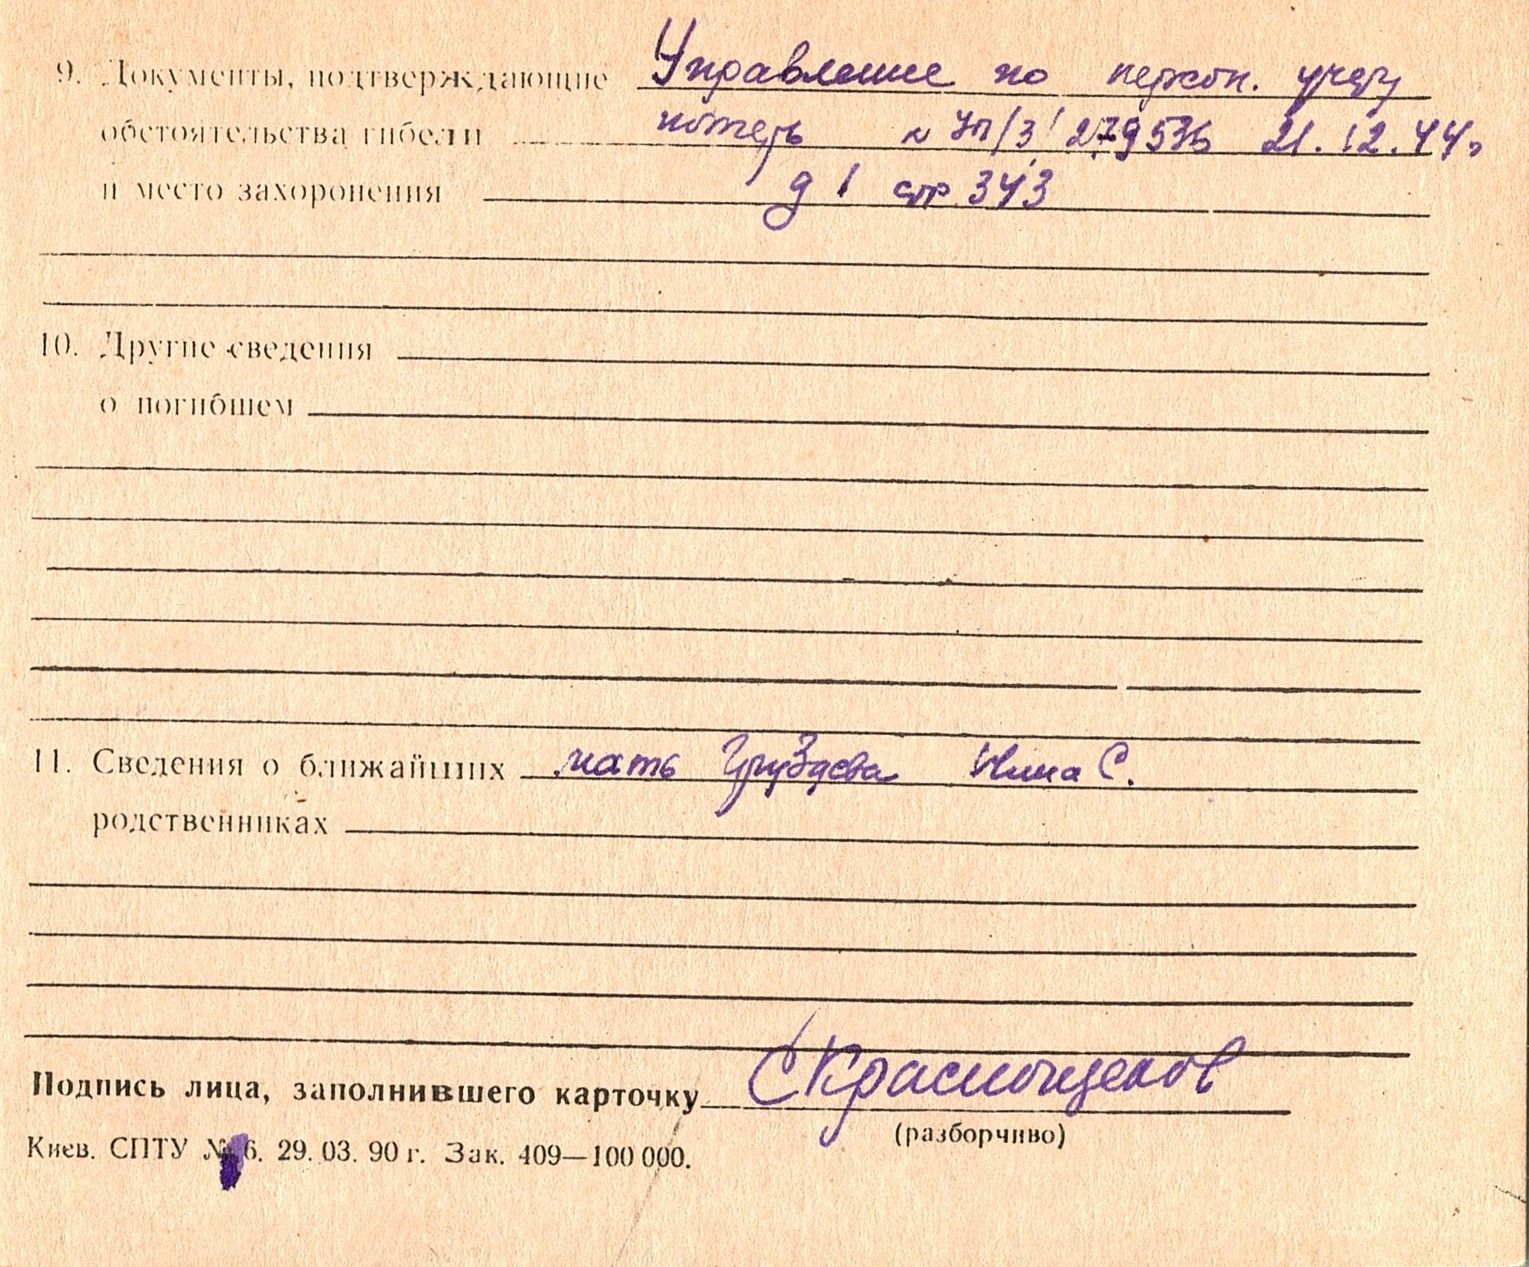 9. Документы, подтверждающие Управление по персон. учету
обстоятельства гибели потерь 279536 21.12.44г
и место захоронения д 1 стр. 343
10. Другие сведения
о погибшем
11. Сведения о ближайших мать Груздева Нина С.
родственниках
Подпись лица, заполнившего карточку С Краснощеков
(разборчиво)
Киев. СПТУ № 6. 29. 03. 90 г. Зак. 409—100 000.